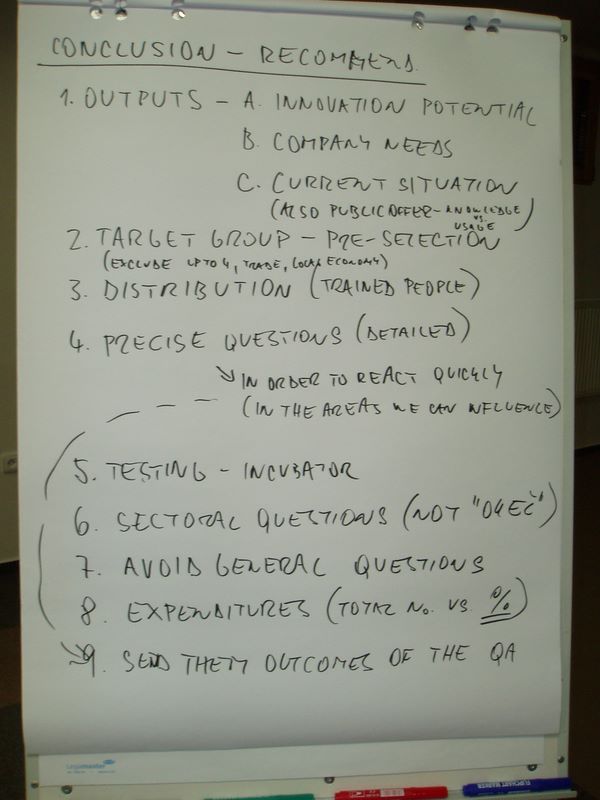 CONCLUSION - RECOMMEND.
1. OUTPUTS - A. INNOVATION POTENTIAL
B. COMPANY NEEDS
C. CURRENT SITUATION
(ALSO PUBLIC OFFER - KNOWLEDGE
VS. USAGE)
2. TARGET GROUP - PRE-SELECTION
(EXCLUDE UP TO 4, TRADE, LOCAL ECONOMY)
3. DISTRIBUTION (TRAINED PEOPLE)
4. PRECISE QUESTIONS (DETAILED)
IN ORDER TO REACT QUICKLY
(IN THE AREAS WE CAN INFLUENCE)
5. TESTING - INCUBATOR
6. SECTORAL QUESTIONS (NOT "OKEČ")
7. AVOID GENERAL QUESTIONS
8. EXPENDITURES (TOTAL No. VS. %)
9. SEND THEM OUTCOMES OF THE QA
Legamaster
FLIPCHART MARKER